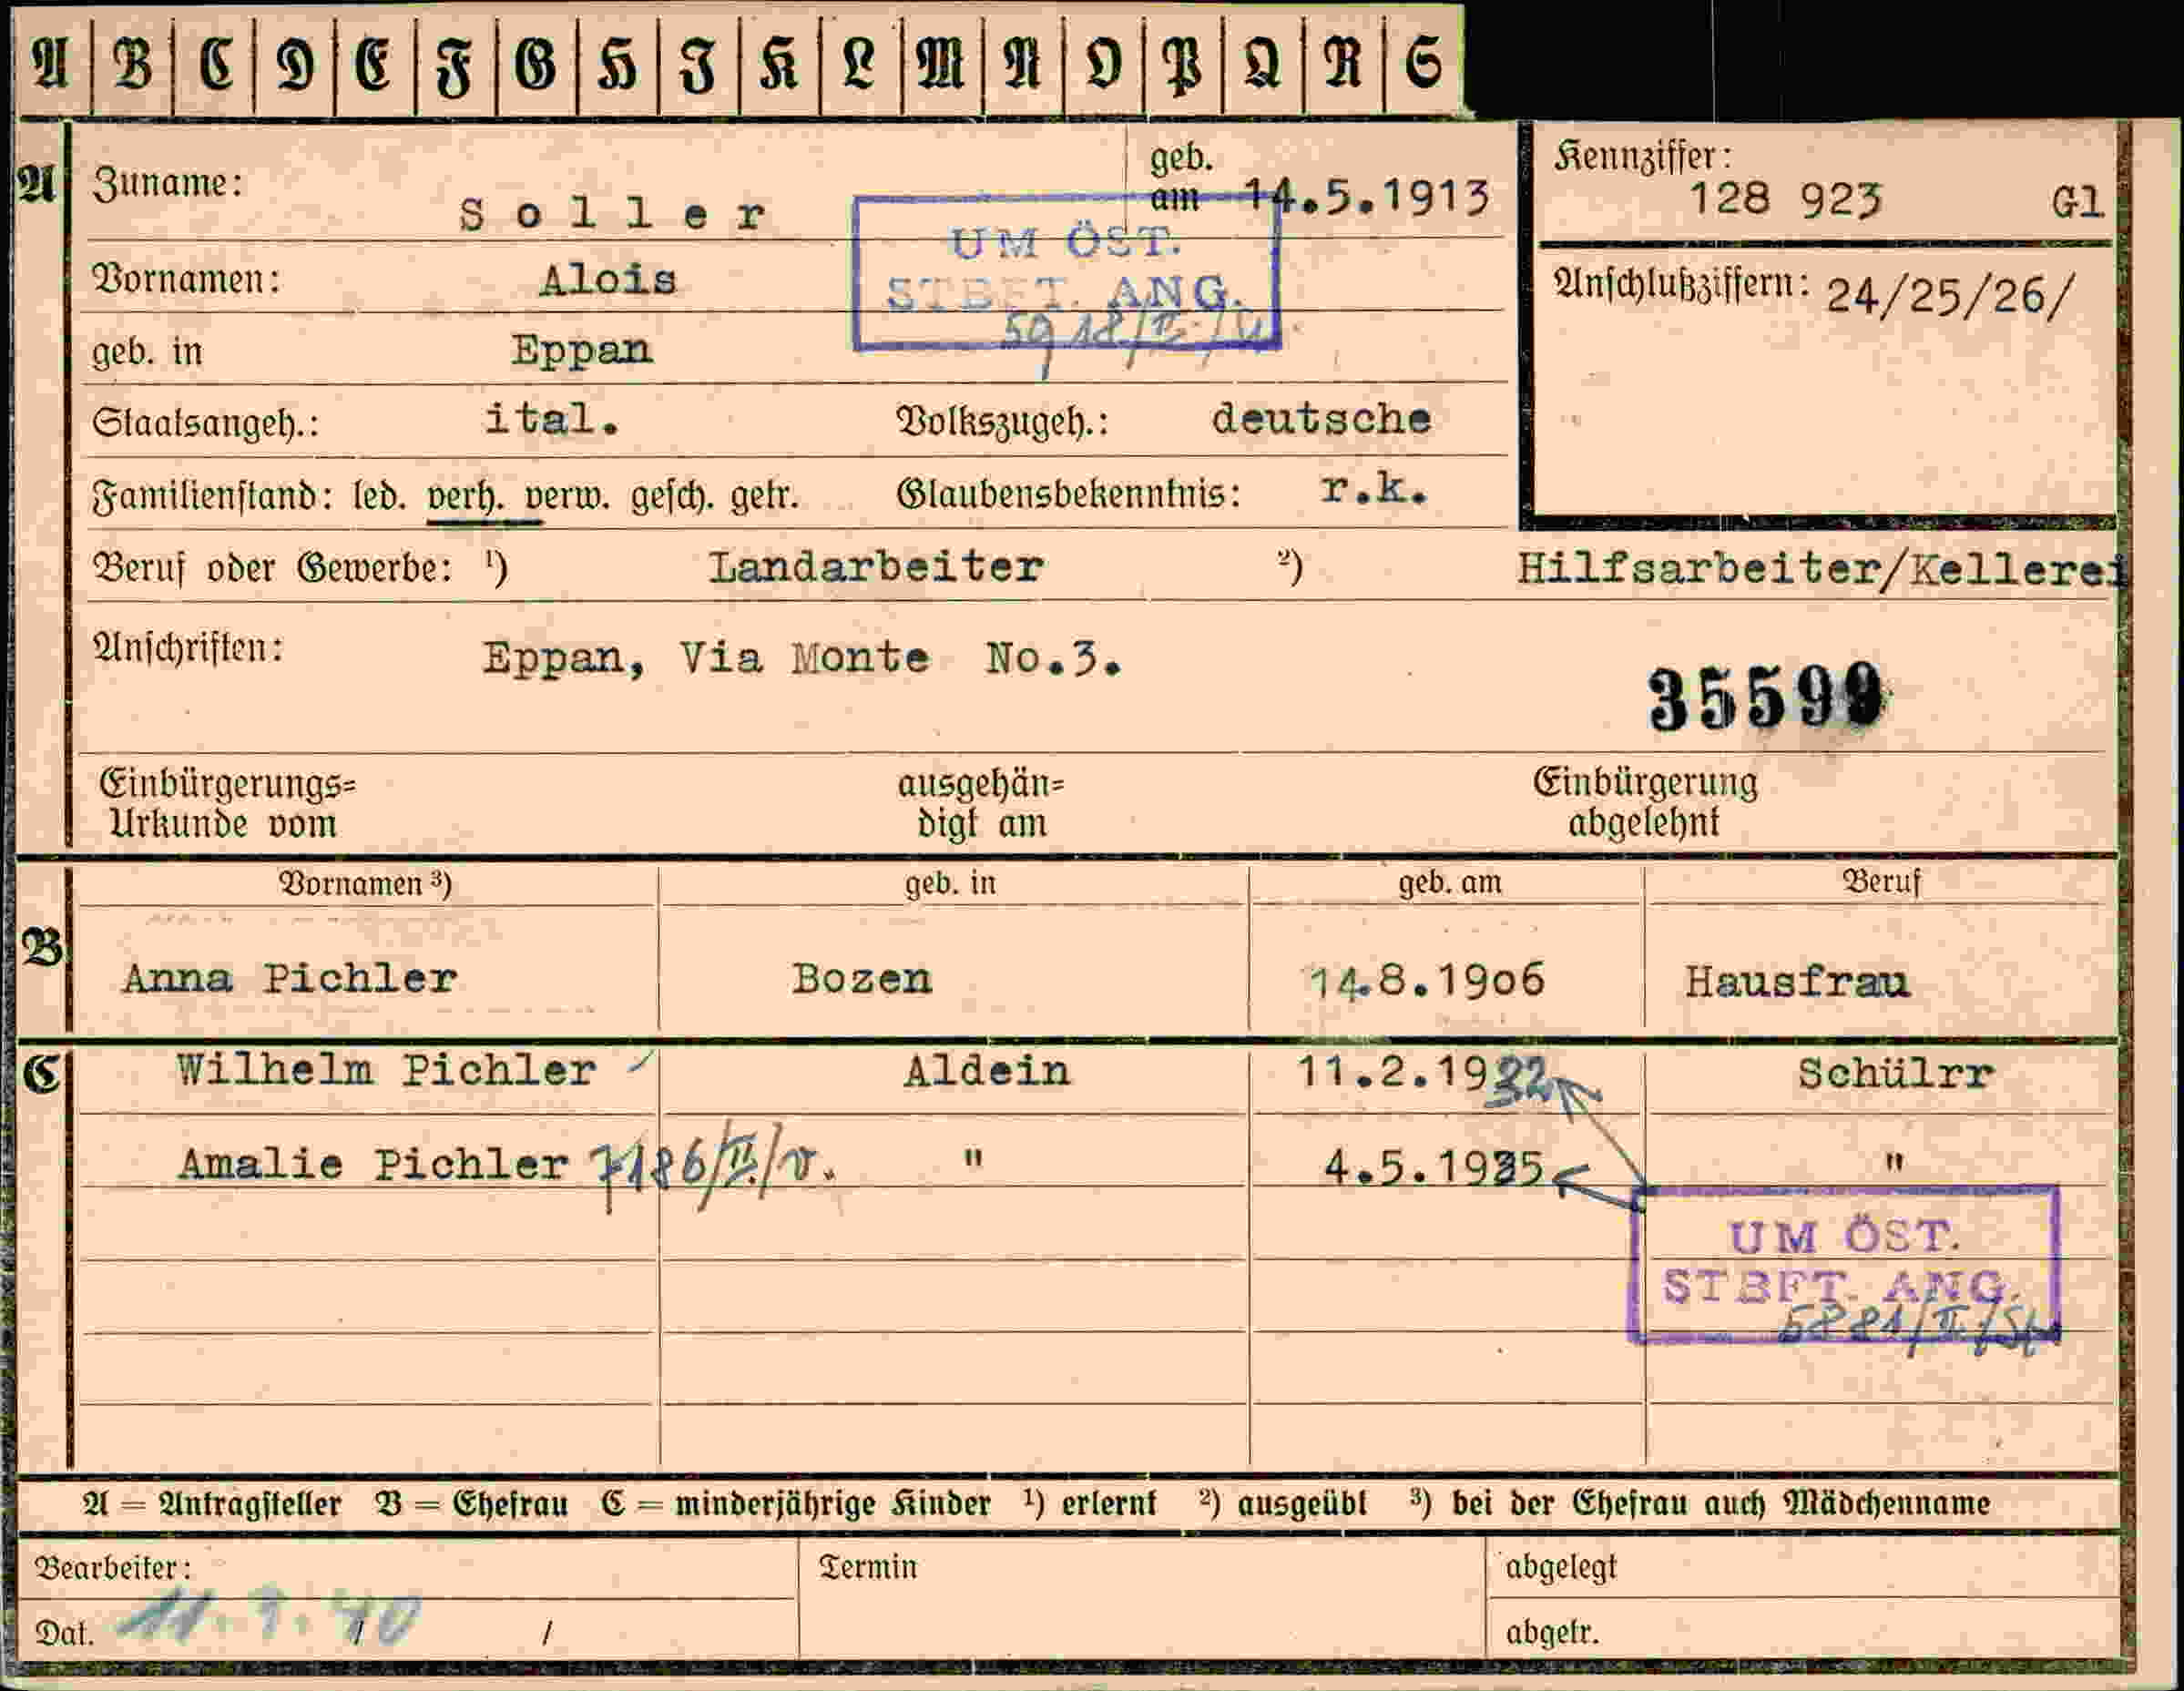 A B C D E F G H I K L M N O P Q R S
A Zuname: Soller geb. am 14.5.1913
Kennziffer: 128 923 Gl
UM ÖST.
STBFT. ANG.
Vornamen: Alois
Anschlußziffern: 24/25/26/
geb. in Eppan
Staatsangeh.: ital. Volkszugeh.: deutsche
Familienstand: led. verh. verw. gesch. getr. Glaubensbekenntnis: r.k.
Beruf oder Gewerbe: 1) Landarbeiter 2) Hilfsarbeiter/Kellerei
Anschriften: Eppan, Via Monte No.3.
35599
Einbürgerungs= ausgehän= Einbürgerung
Urkunde vom digt am abgelehnt
Vornamen 3) geb. in geb. am Beruf
B Anna Pichler Bozen 14.8.1906 Hausfrau
C Wilhelm Pichler Aldein 11.2.1932 Schülrr
Amalie Pichler 7186/II/v. " 4.5.1935 "
UM ÖST.
STBFT. ANG.
A = Antragsteller B = Ehefrau C = minderjährige Kinder 1) erlernt 2) ausgeübt 3) bei der Ehefrau auch Mädchenname
Bearbeiter: Termin abgelegt
Dat. / / abgetr.